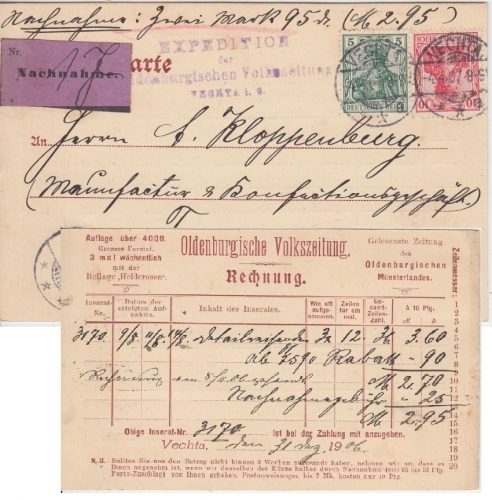 Nachnahme: Zwei Mark 95 d. (M 2.95)
Nr.
Nachnahme.
karte
EXPEDITION
der
Oldenburgischen Volkszeitung
VECHTA i. O.
5
DEUTSCHES REICH
10
VECHTA
An Herrn C. Kloppenburg.
(Manufactur & Konfectionsgeschäft.)
Auflage über 4000.
Grosses Format.
3 mal wöchentlich
mit der
Beilage „Heiderosen“.
Oldenburgische Volkszeitung.
Rechnung.
Gelesenste Zeitung
des
Oldenburgischen
Münsterlandes.
Zeilenmesser:
Inserat-Nr.
Datum der erfolgten Aufnahme.
Inhalt des Inserates.
Wie oft aufgenommen.
Zeilen für ein mal.
Gesamt-Zeilen-Zahl.
à 10 Pfg.
3170 9/8 11/8 14/8 Detailreisender 3x 12 36 3.60
Rabatt 90
M 2.70
Nachnahmegebühr 25
M 2.95
Obige Inserat-Nr. 3170 ist bei der Zahlung mit anzugeben.
Vechta, den 31 Dez 1906.
N.B. Sollten Sie uns den Betrag nicht binnen 3 Wochen zugesandt haben, nehmen wir an, dass es
Ihnen angenehm ist, wenn wir denselben der Kürze halber durch Nachnahme
Porto-Zuschlag) von Ihnen erheben. Postanweisungen bis 5 Mk. kosten nur 10 Pfg.
1
2
3
4
5
6
7
8
9
10
11
12
13
14
15
16
17
18
19
20